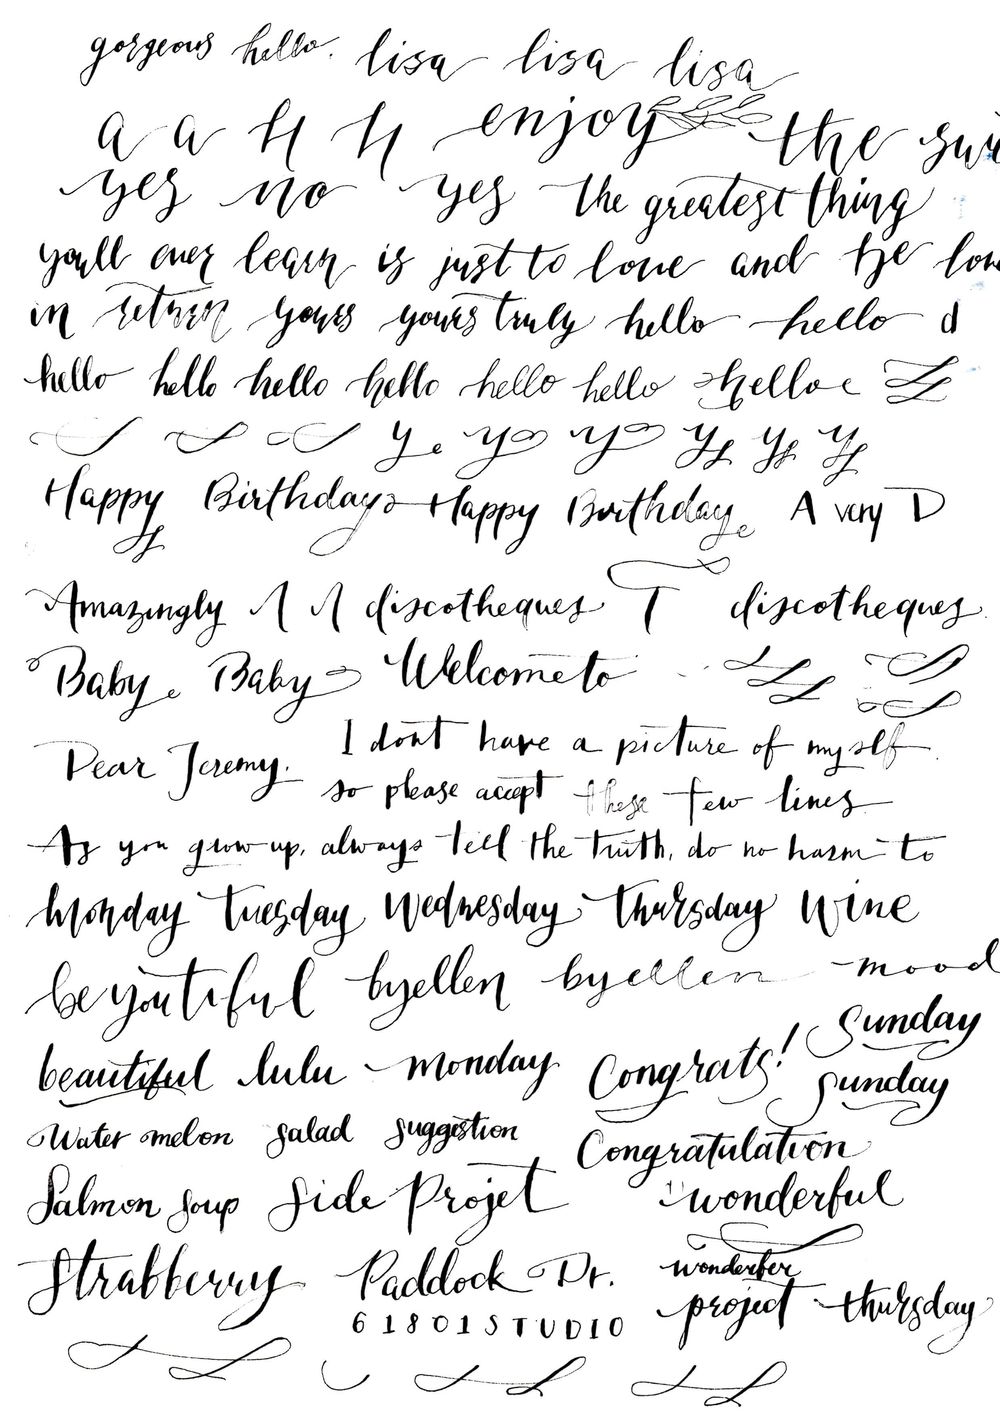 gorgeous hello. lisa lisa lisa
a a h h enjoy the
yes no yes the greatest thing
you'll ever learn is just to love and be
in return yours yours truly hello hello d
hello hello hello hello hello hello hello e
y y y y y y
Happy Birthday Happy Birthday A very D
Amazingly A A discotheques T discotheques
Baby Baby Welcome to
Dear Jeremy. I don't have a picture of myself
so please accept these few lines
As you grow up, always tell the truth, do no harm to
Monday Tuesday Wednesday Thursday Wine
beyoutiful byellen byellen mood
Sunday
beautiful lulu monday Congrats! Sunday
Water melon Salad Suggestion
Congratulation
Salmon Soup Side Projet wonderful
Strabberry Paddock Dr. wonderfer
61801STUDIO project thursday